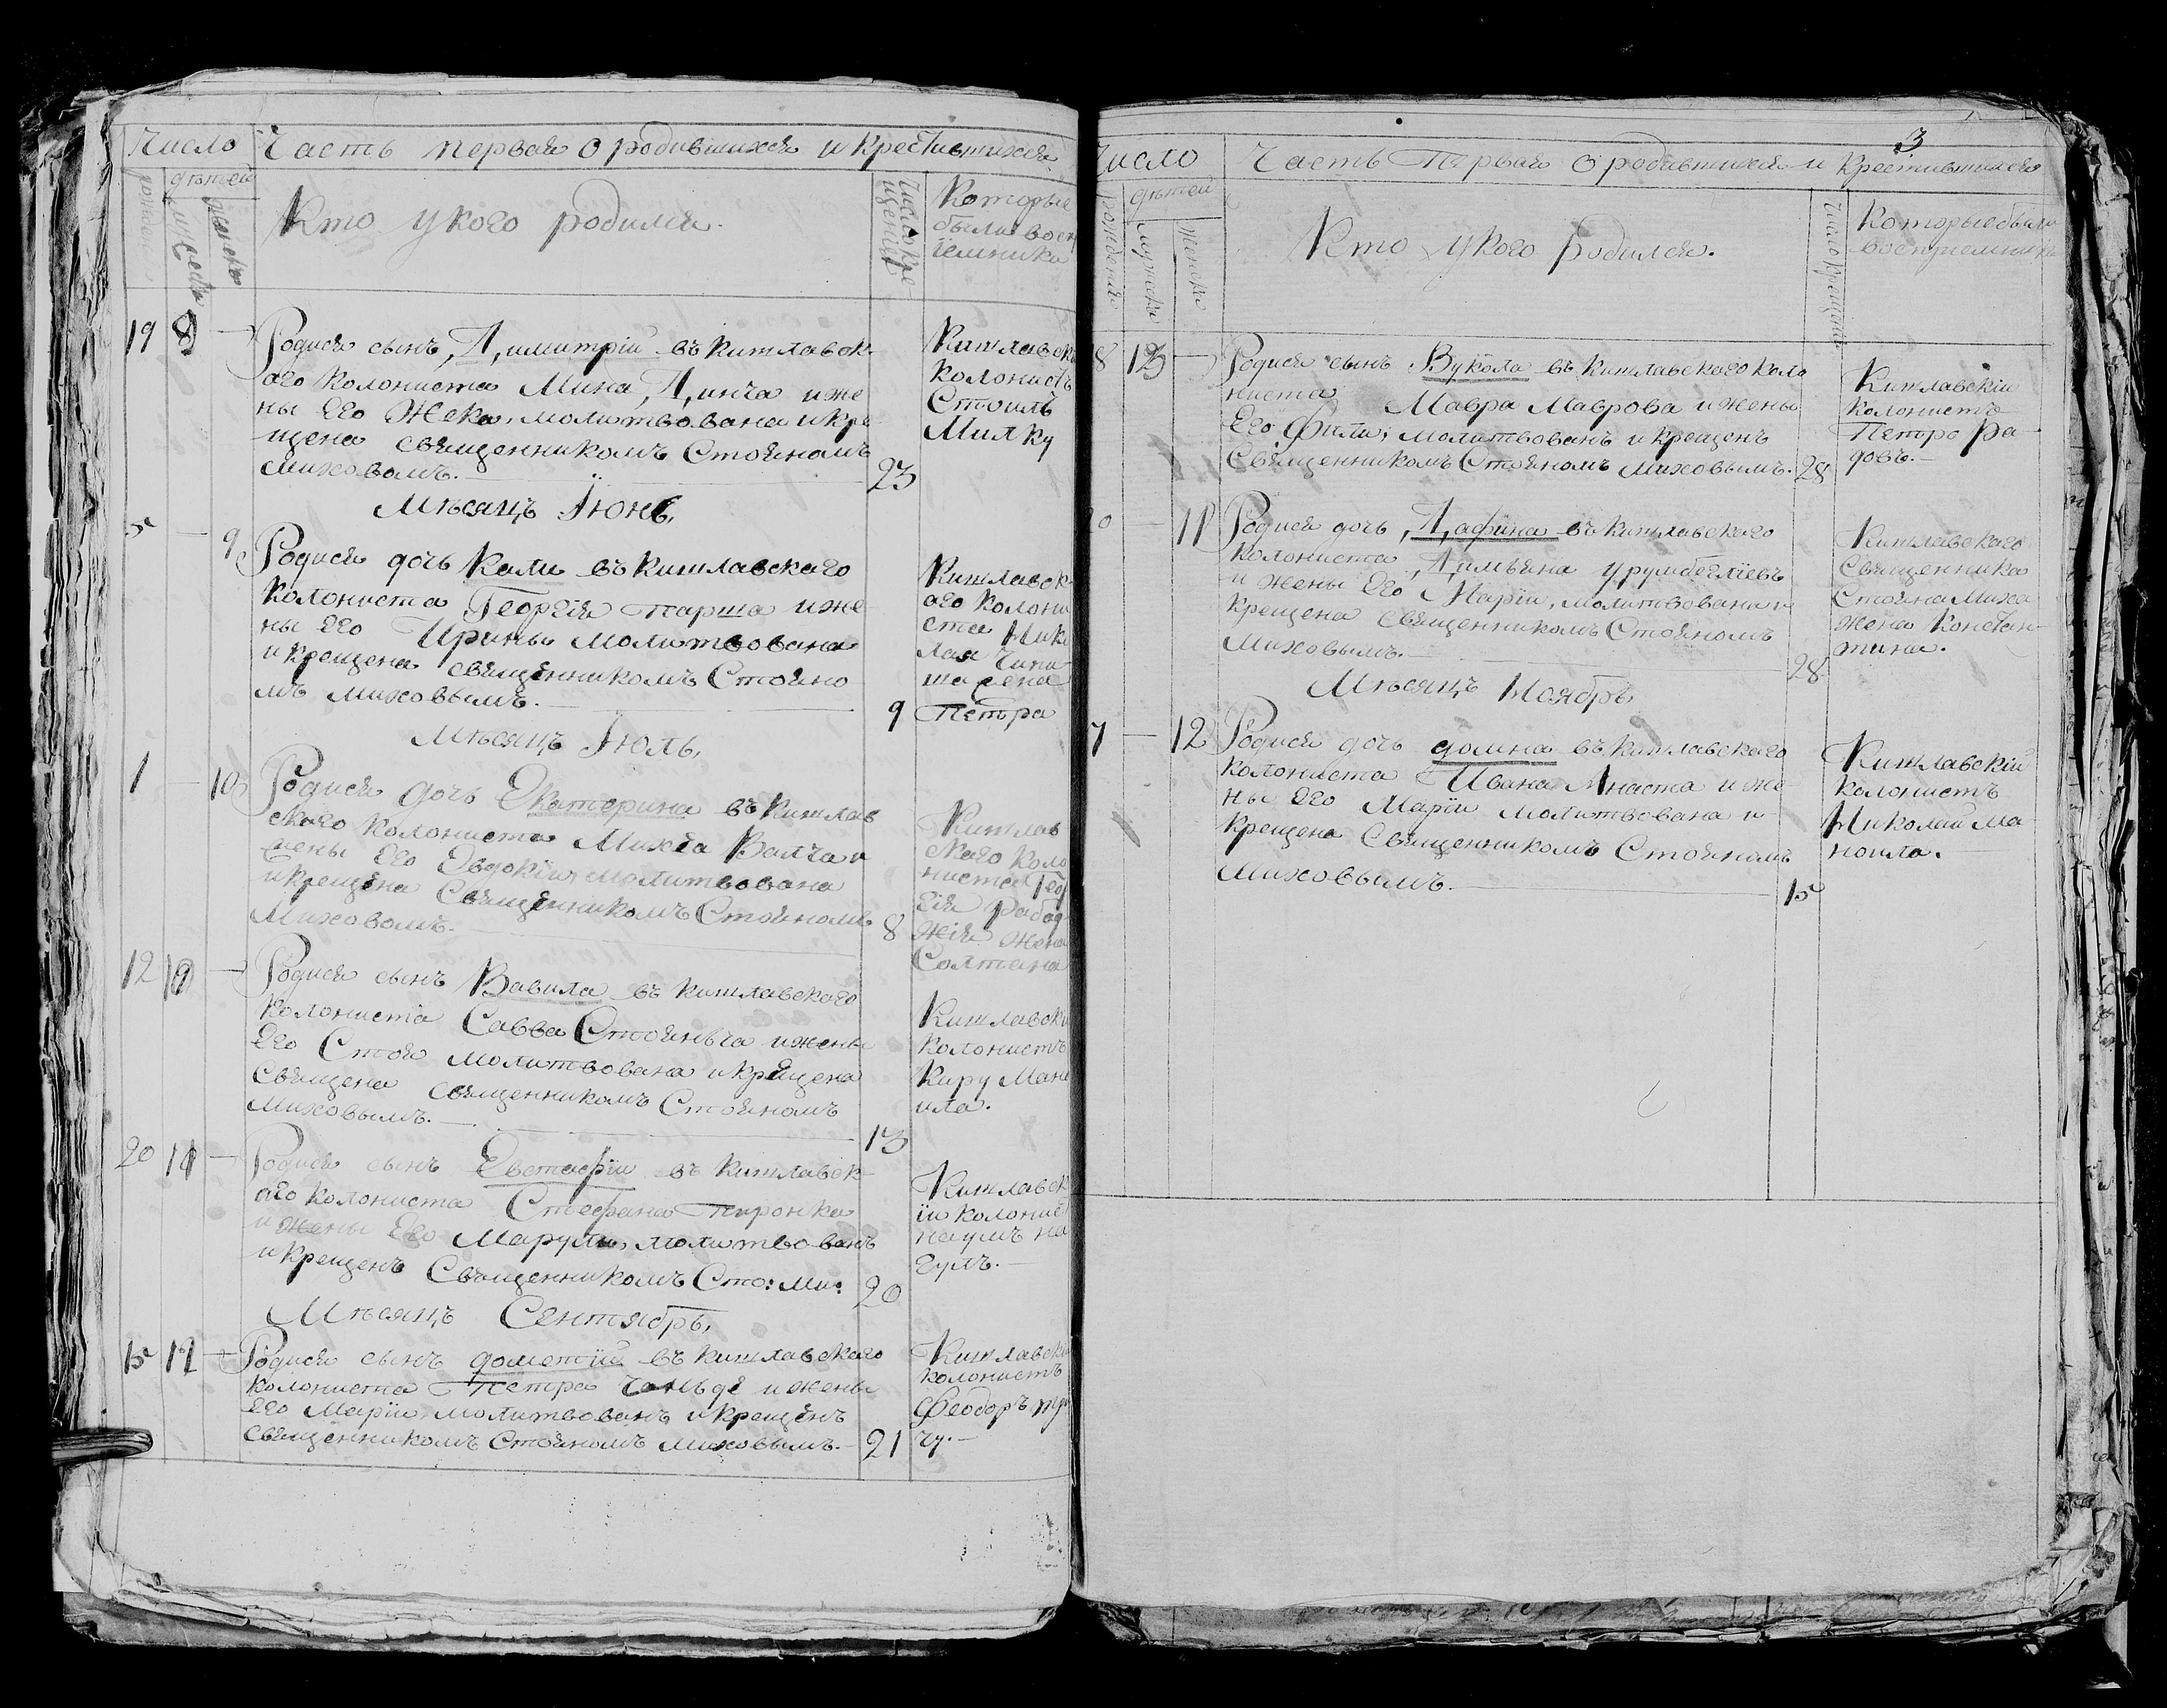 Число Часть первая о родившихся и крестившихся
рождения
дѣтей
мужеска
женска
Кто укого родился.
Число крещенія
Которые
были восп
іемники
19 8 — Родися сынъ Димитрій въ кишлавск-
аго колониста Мина Динча иже
ны Его Жека, молитвована икре
щена священникомъ Стояномъ
Миховомъ. — 23
Кишлавски
колонистъ
Стоилъ
Милку
Мѣсяцъ Іюнь,
5 — 9 Родися дочь Кали въ кишлавскаго
колониста Георгія Парша иже
ны Его Ирины молитвована
и крещена священникомъ Стояно
мъ Миховымъ. — 9
Кишлавск
аго колони
ста Нико
лая
жена
Петра
Мѣсяцъ Іюль,
1 — 10 Родися дочь Екатерина въ Кишлав
скаго колониста Михва Валчаи
жены Его Евдокіи молитвована
икрещена Священникомъ Стояномъ
Миховомъ. — 8
Кишлав
скаго коло
ниста Геор
гія
жена
Солтана
12 10 — Родися сынъ Вавила въ кишлавскаго
колониста Савва Стоянвча ижены
Его Стоя молитвована икрещена
священа священникомъ Стояномъ
Миховымъ. — 13
Кишлавски
колонистъ
Киру Мано
ила.
20 11 — Родися сынъ Евстафїи въ кишлавск-
аго колониста Стефана Пиронка
и жены Его Марули, молитвованъ
икрещенъ Священникомъ Сто: Ми: 20
Кишлавск
їи колонис
наумъ на
гулъ. —
Мѣсяцъ Сентябрь,
15 12 — Родися сынъ дометїй въ кишлавскаго
колониста Петра ижены
Его Марїи, молитвованъ икрещенъ
священникомъ Стояномъ Миховымъ. — 21
Кишлавски
колонистъ
Феодоръ
чу. —
3
число Часть Первая о родившихся и Крестившихся
рожденія
дѣтей
мужеска
женска
Кто укого родился.
Число крещенія
Которыебыли
воспріемники
8 13 — Родися сынъ Вукола въ кишлавскаго коло
ниста Мавра Маврова ижены
Его Фили, молитвованъ и крещенъ
Священникомъ Стояномъ Миховымъ. 28
Кишлавскіи
колонистъ
Петро Ра-
довъ. —
20 — 11 Родися дочь Дафина въ кишлавскаго
колониста Димвяна урумбеглїевъ
и жены Его Марїи, молитвована и
крещена священникомъ Стояномъ
Миховымъ. — 28
Кишлавскаго
Священника
Стояна Миха
жена констан-
тина.
Мѣсяцъ Ноябрь,
7 — 12 Родися дочь домна въ кишлавскаго
колониста Ивана Мнаста иже-
ны Его Марїи молитвована и
крещена Священникомъ Стояномъ
Миховымъ. — 15
Кишлавскій
колонистъ
Николай Ма-
ноила.